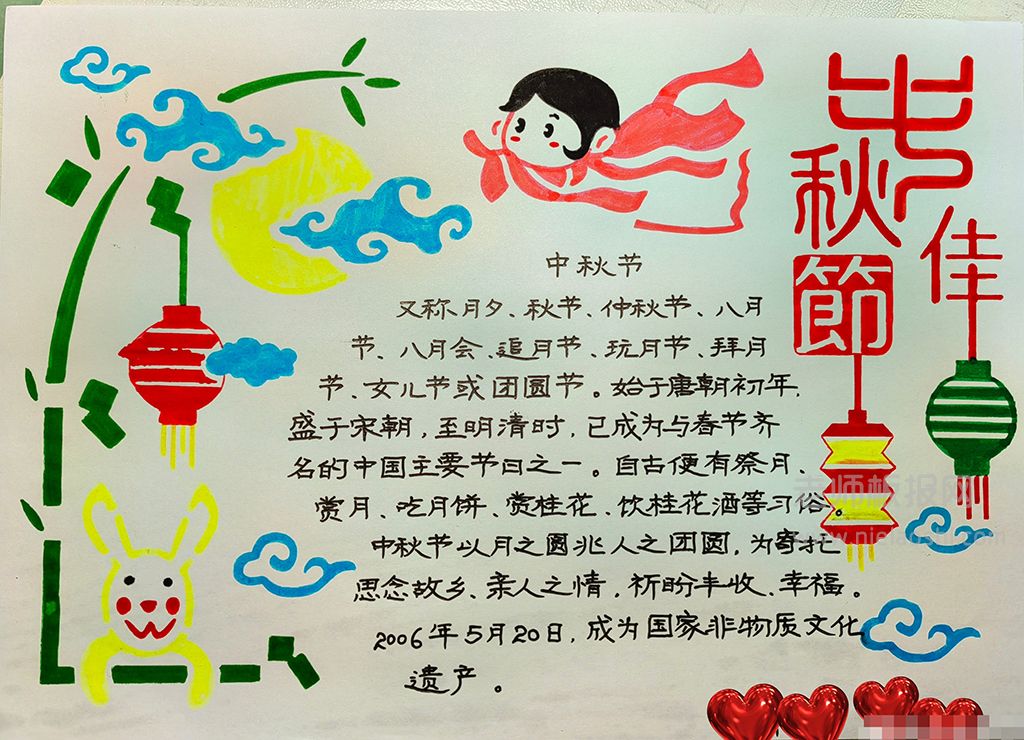 中秋節
佳
中秋节
又称月夕、秋节、仲秋节、八月
节、八月会、追月节、玩月节、拜月
节、女儿节或团圆节。始于唐朝初年,
盛于宋朝,至明清时,已成为与春节齐
名的中国主要节日之一。自古便有祭月、
赏月、吃月饼、赏桂花、饮桂花酒等习俗。
中秋节以月之圆兆人之团圆,为寄托
思念故乡、亲人之情,祈盼丰收、幸福。
2006年5月20日,成为国家非物质文化
遗产。
老师板报网